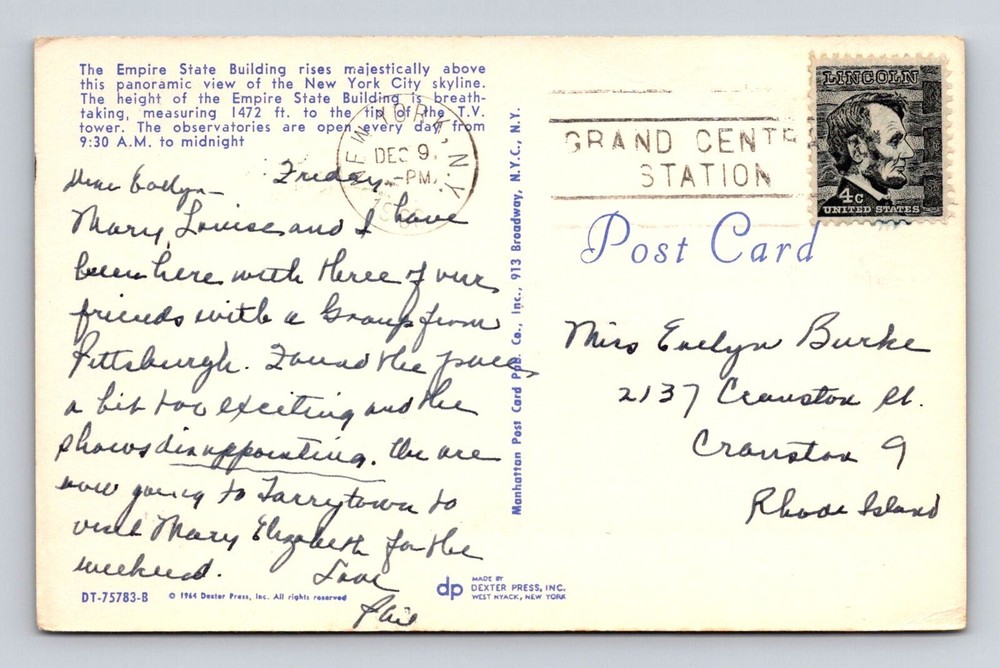 The Empire State Building rises majestically above
this panoramic view of the New York City skyline.
The height of the Empire State Building is breath-
taking, measuring 1472 ft. to the tip of the T.V.
tower. The observatories are open every day from
9:30 A.M. to midnight
Dear Evelyn— Friday
Mary Louise and I have
been here with three of our
friends with a Group from
Pittsburgh. Found the pace
a bit too exciting and the
shows disappointing. We are
now going to Tarrytown to
visit Mary Elizabeth for the
weekend. Love
DT-75783-B © 1964 Dexter Press, Inc. All rights reserved
Manhattan Post Card Pub. Co., Inc., 913 Broadway, N.Y.C., N.Y.
dp MADE BY
DEXTER PRESS, INC.
WEST NYACK, NEW YORK
NEW YORK, N.Y.
DEC 9,
-PM
GRAND CENTR
STATION
LINCOLN
4c
UNITED STATES
Post Card
Miss Evelyn Burke
2137 Cranston St.
Cranston 9
Rhode Island